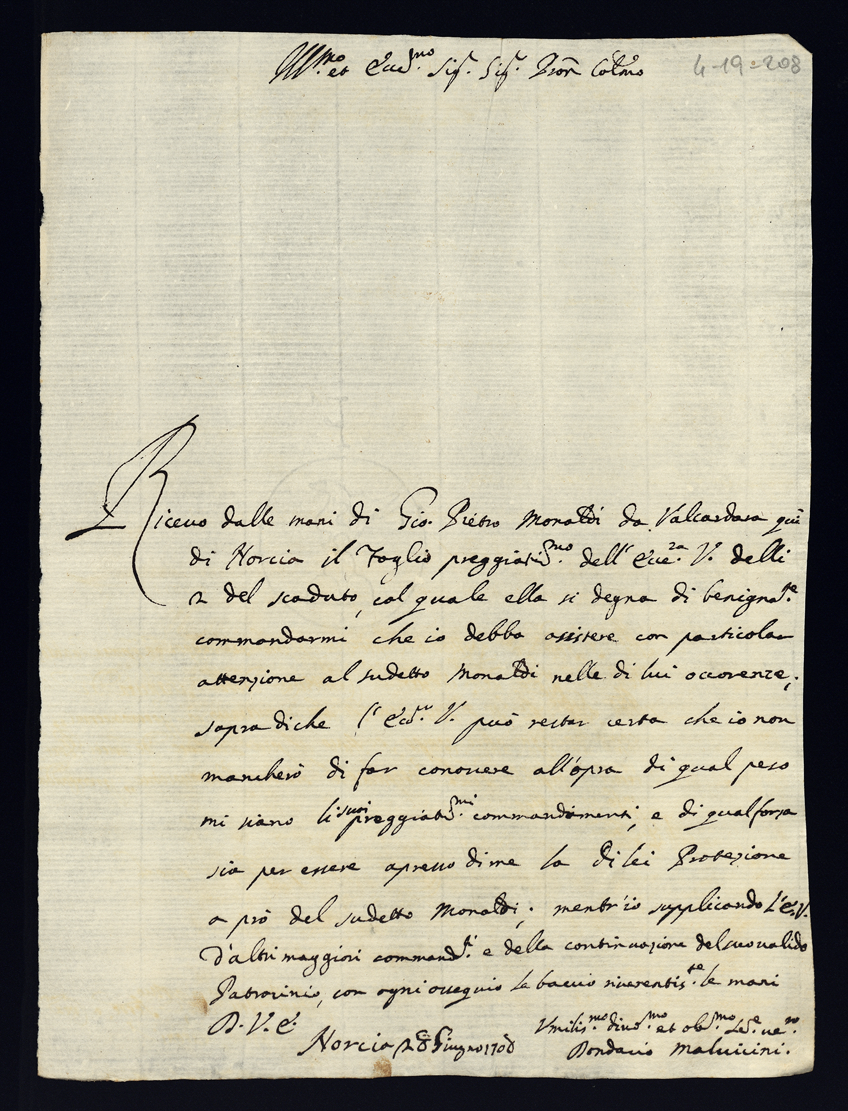 Ill.mo et Ecc.mo Sig.r Sig.r Pron Col.mo
4-19=208
Riceuo dalle mani di Gio. Pietro Monaldi da Valcardara quì
di Norcia il foglio preggiatis.mo dell' Ecc.za V. delli
2 del scaduto, col quale ella si degna di benigna.te
commandarmi che io debba assistere con particolar
attenzione al sudetto Monaldi nelle di lui occorenze;
sopra di che l' Ecc.za V. può restar certa che io non
mancherò di far conoscere all'opra di qual peso
mi siano li suoi preggiatis.mi commandamenti, e di qual forza
sia per essere apresso di me la di lei Protezione
a prò del sudetto Monaldi; mentr'io supplicando L'E.V.
d'altri maggiori command.ti e della continuazione del suo valido
Patrocinio, con ogni ossequio le baccio riverentis.te le mani
D. V. E.
Norcia 28 Giugno 1708
Vmilis.mo diuo.mo et obb.mo
Bondacio Maluicini.